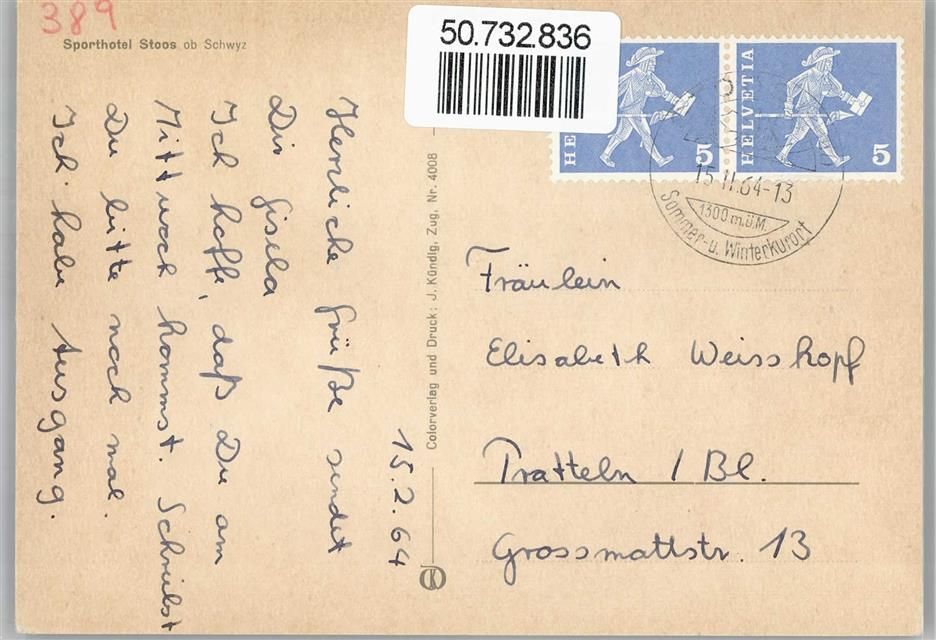 389
Sporthotel Stoos ob Schwyz
50.732.836
HELVETIA 5
HELVETIA 5
15.II.64-13
1300 m.ü.M.
Sommer- u. Winterkurort
15.2.64
Herzliche Grüße sendet
Dir Gisela
Ich hoffe, daß Du am
Mittwoch kommst. Schreibst
Du bitte noch mal.
Ich habe Ausgang.
Colorverlag und Druck: J. Kündig, Zug, Nr. 4008
Fräulein
Elisabeth Weisskopf
Pratteln / Bl.
Grossmattstr. 13